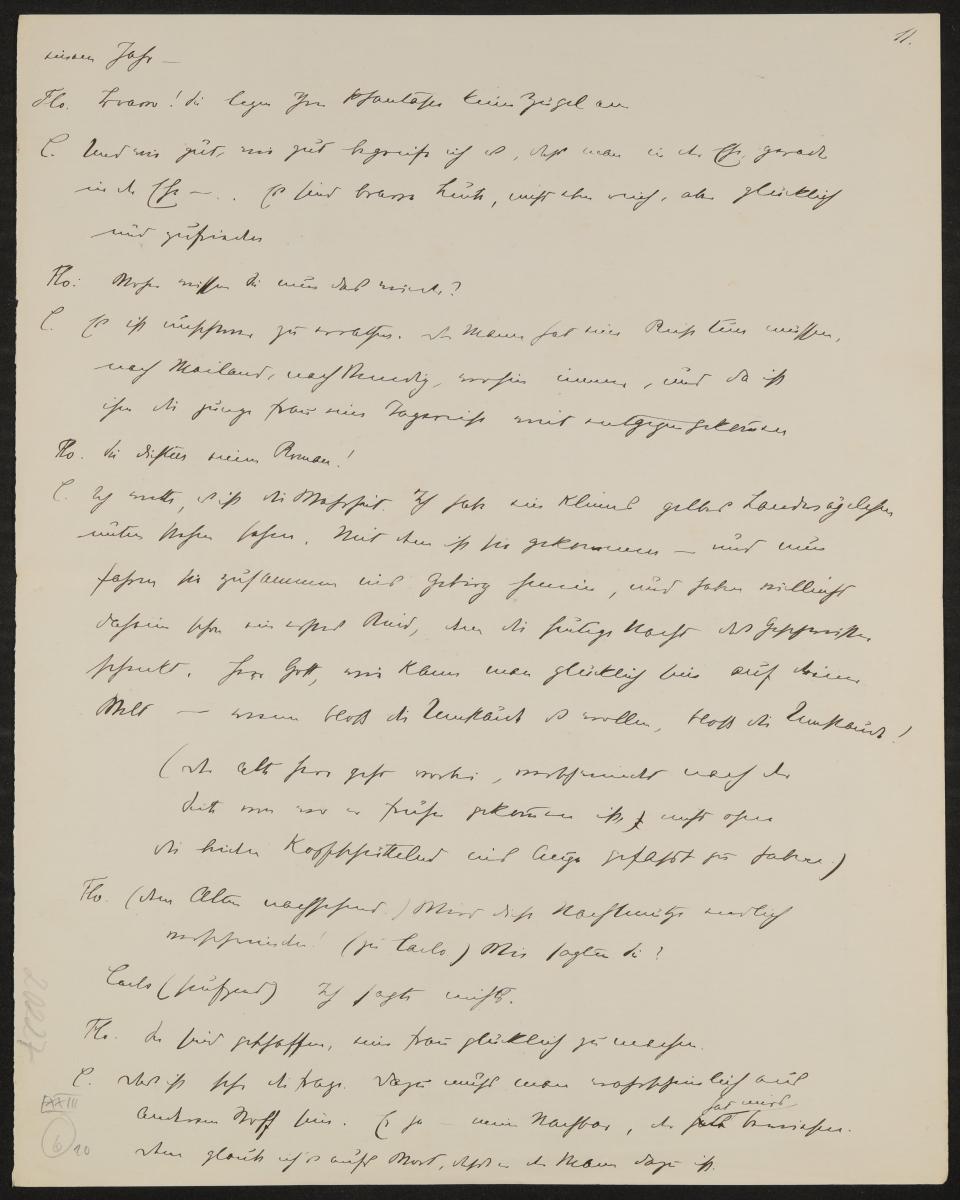 11.
einem Jahr —
Flo. Bravo! Sie legen Ihrer Phantasie keine Zügel an
C. Und wie gut, wie gut begreife ich es, dass man in der Ehe, gerade
in der Ehe — . . Es sind brave Leute, nicht eben reich, aber glücklich
und zufrieden
Flo: Woher wissen Sie nun das wieder?
C. Es ist unschwer zu errathen. Der Mann hat eine Reise tun müssen,
nach Mailand, nach Venedig, wohin immer, und da ist
ihm die junge Frau eine Tagereise weit entgegengekommen
Flo. Sie dichten einen Roman!
C. Ich wette, es ist die Wahrheit. Ich habe ein kleines gelbes Landwägelchen
unten stehen sehen. Mit dem ist sie gekommen — und nun
fahren sie zusammen ins Gebirg hinein, und haben vielleicht
daheim schon ein erstes Kind, dem die heutige Nacht das Geschwister
schenkt. Herr Gott, wie kann man glücklich sein auf deiner
Welt — wenn bloß die Umstände es wollen, bloß die Umstände!
(der alte Herr geht vorbei, verschwindet nach der
Seite von wo er früher gekommen ist, nicht ohne
die beiden kopfschüttelnd ins Auge gefaßt zu haben.)
Flo. (dem Alten nachsehend.) Wird diese Nachtmütze endlich
verschwinden! (zu Carlo) Wie sagten Sie?
Carlo (seufzend) Ich sagte nichts.
Flo. Sie sind geschaffen, eine Frau glücklich zu machen.
C. Das ist sehr die Frage. Dazu muß man wahrscheinlich aus
anderem Stoff sein. Ja ja — mein Nachbar, der hat wird
dem glaub ich's aufs Wort, dass er der Mann dazu ist.
20227
XXIII
6
20